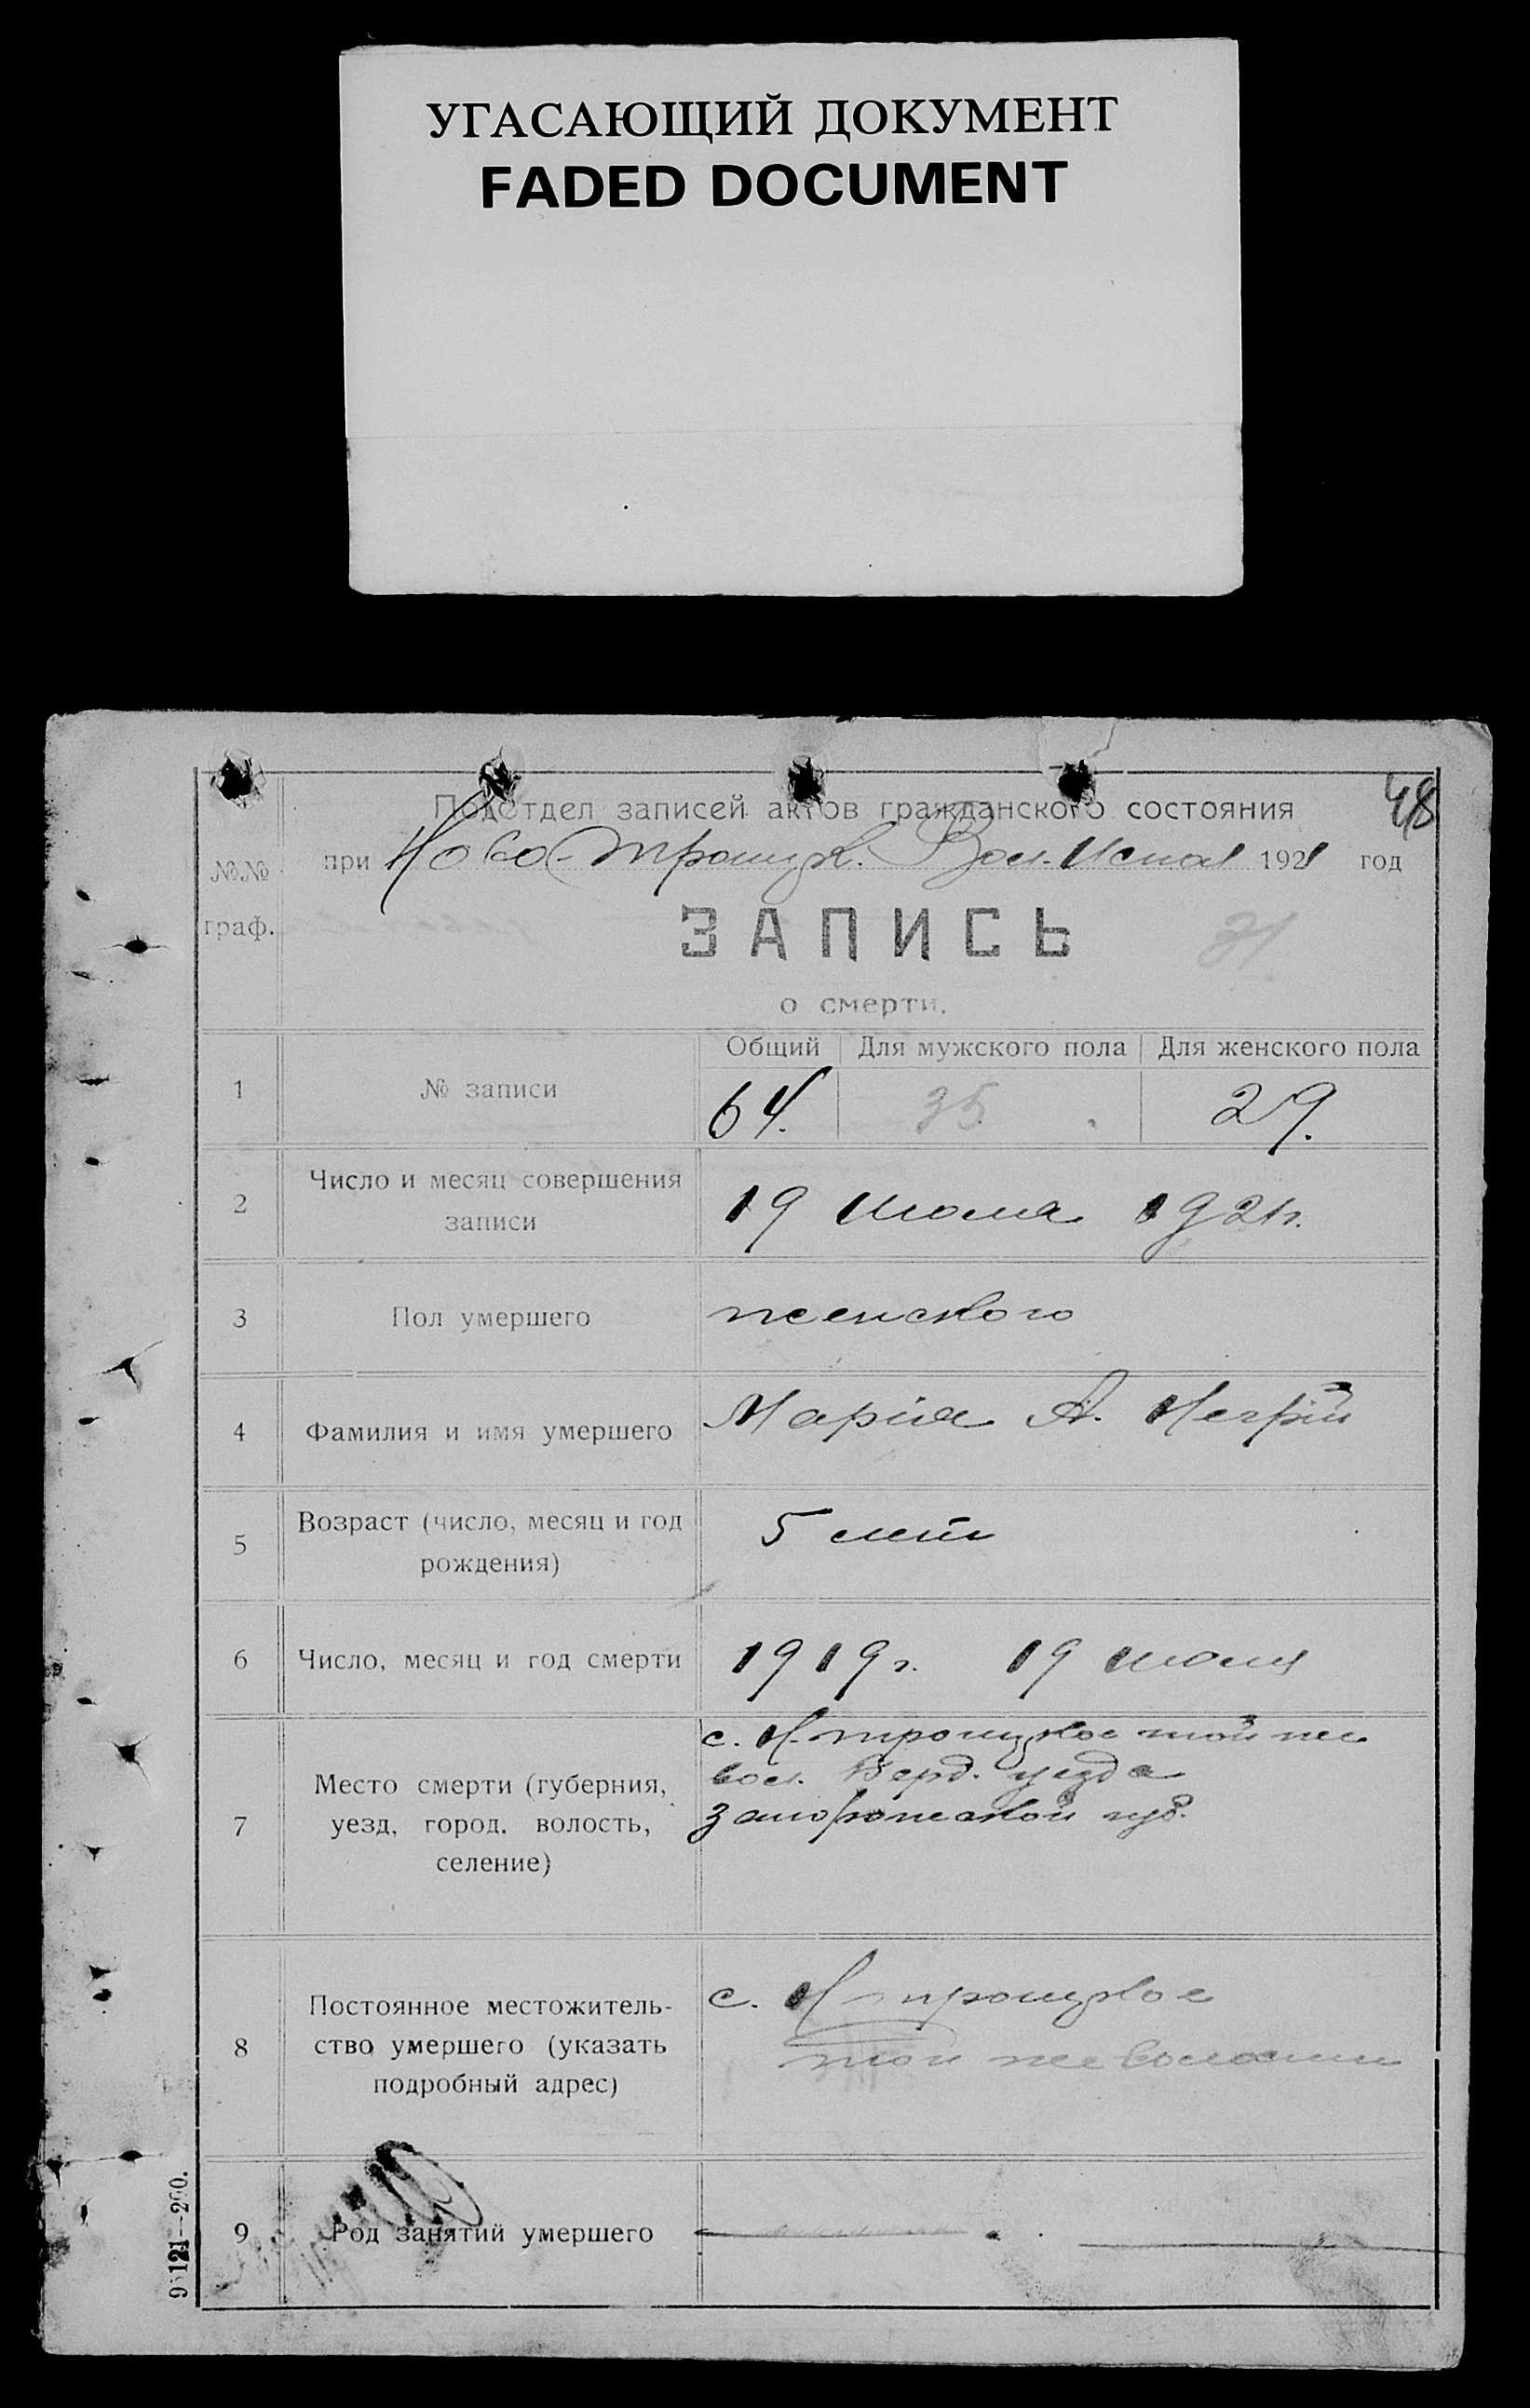 УГАСАЮЩИЙ ДОКУМЕНТ
FADED DOCUMENT
48
Подотдел записей актов гражданского состояния
№№ граф.
при Ново-Троицк. Вол. Испол 1921 год
ЗАПИСЬ
31
о смерти.
Общий Для мужского пола Для женского пола
1 № записи 64. 35 29.
2 Число и месяц совершения
записи
19 июля 1921г.
3 Пол умершего женского
4 Фамилия и имя умершего Марія А.
5 Возраст (число, месяц и год
рождения)
5 лет
6 Число, месяц и год смерти 1919г. 19
7 Место смерти (губерния,
уезд, город, волость,
селение)
с. Н-троицкое той же
вол. Берд. уезда
запорожской губ.
8 Постоянное местожитель-
ство умершего (указать
подробный адрес)
с. Н-троицкое
той же волости
9 Род занятий умершего